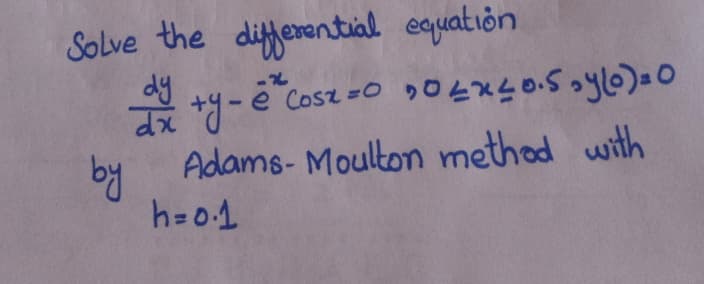 Solve the differential equation
dy/dx + y - e^-x cosx = 0 , 0 ≤ x ≤ 0.5 , y(0) = 0
by Adams-Moulton method with
h = 0.1